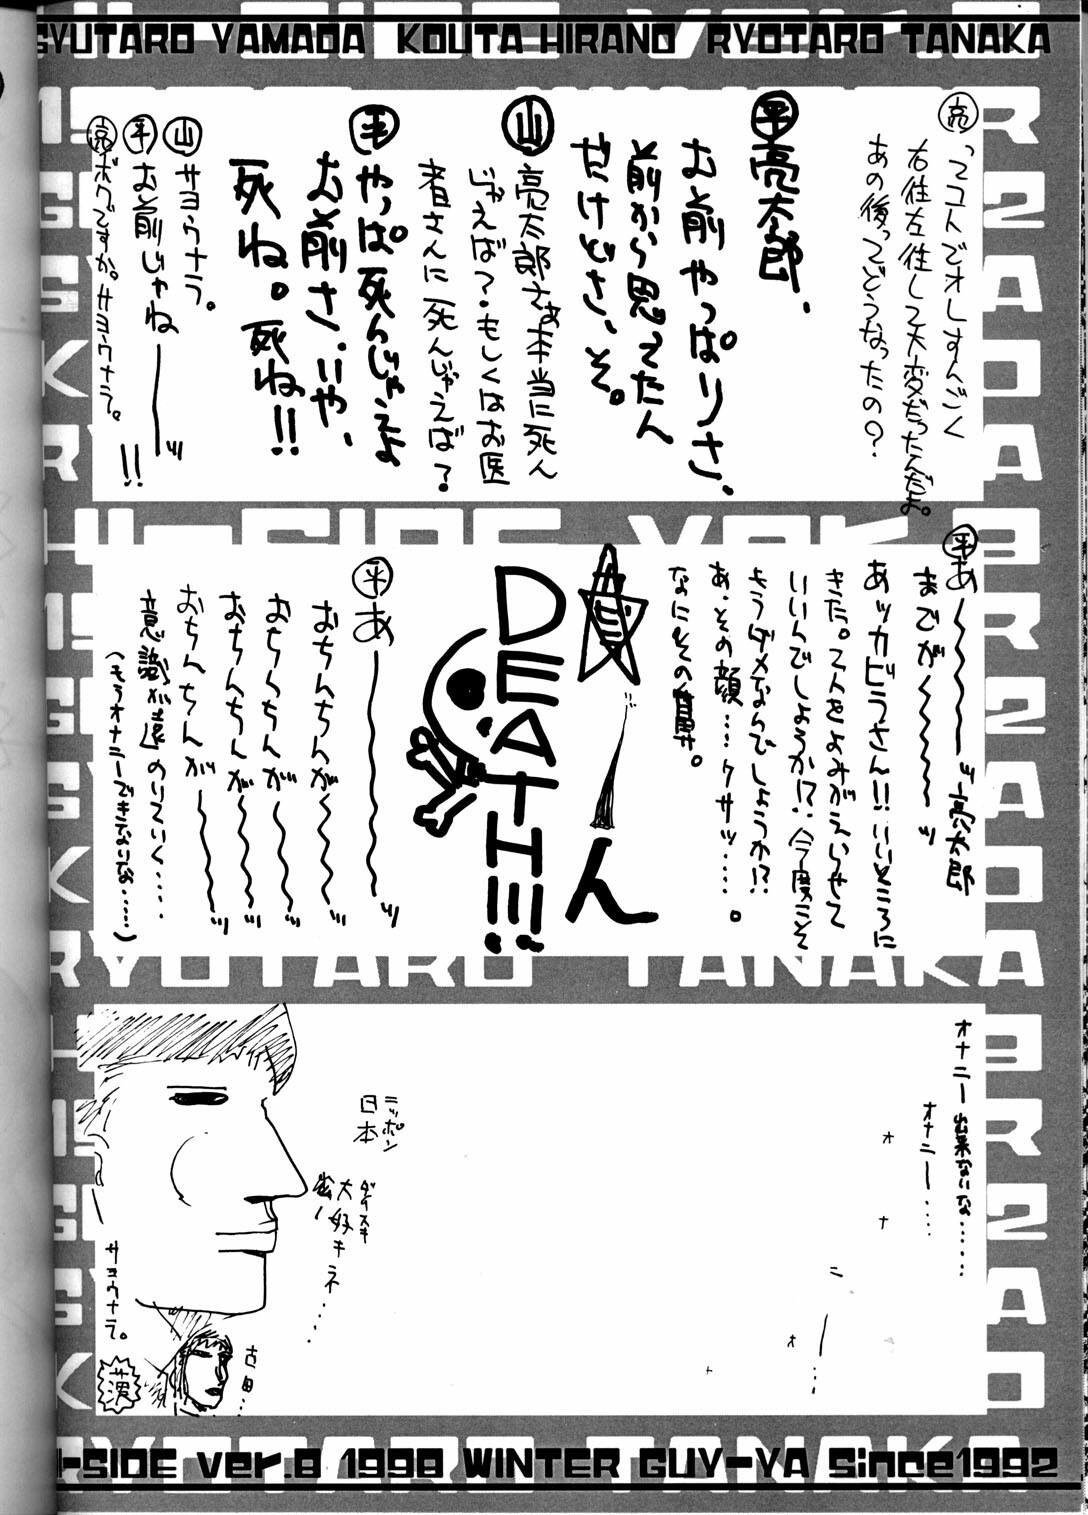 GYUTARO YAMADA KOUTA HIRANO RYOTARO TANAKA
亮 ってコトでオレすんごく
右往左往して大変だったんだよ。
あの後ってどうなったの？
平 亮太郎、
お前やっぱりさ、
前から思ってたん
だけどさ、そ。
山 亮太郎さぁ本当に死ん
じゃえば？もしくはお医
者さんに死んじゃえば？
平 やっぱ死んじゃえよ
お前さ、いや、
死ね。死ね!!
山 サヨウナラ。
平 お前じゃね――ッ!!
亮 ボクですか。サヨウナラ。
平 あ〜〜〜〜ッ亮太郎
までが〜〜〜〜ッ
あッカビラさん!!いいところに
きた。てんをよみがえらせて
いいんでしょうか!?今度こそ
もうダメなんでしょうか!?
あ、その顔…クサッ……。
なにその
ん
DEATH!!!
平 あ〜〜〜〜ッ
おちんちんが〜〜〜ッ
おちんちんが〜〜〜ッ
おちんちんが〜〜〜ッ
おちんちんが〜〜〜ッ
意識が遠のいていく……
（もうオナニーできないな……）
オナニー出来ないな……
オナニー……
オ
ナ
ニ
ー
…
オ
ナ
ニッポン
日本
ダイスキ
大好キネ……
サヨウナラ。
古田…
HI-SIDE ver.8 1998 WINTER GUY-YA Since1992